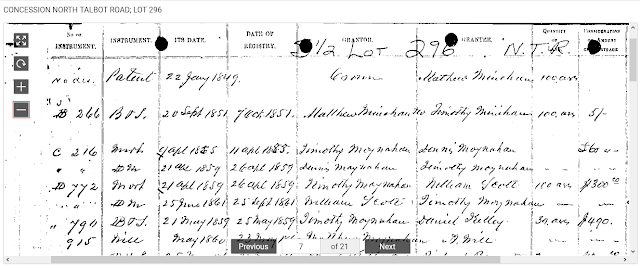 CONCESSION NORTH TALBOT ROAD; LOT 296
No of INSTRUMENT. INSTRUMENT. ITS DATE. DATE OF REGISTRY. GRANTOR. GRANTEE. QUANTITY CONSIDERATION AMOUNT
S 1/2 LOT 296 N.T.R.
Patent 22 Jany Crown Mathew 100 acrs
B 266 B & S. 20 Sept 1851 7 Oct 1851. Matthew Timothy 100 acrs 5/-
C 216 Mort 9 Apl 1855 11 Apl 1855. Timothy Moynahan Dennis Moynahan £60
" " D M 21 Apl 1859 26 Apl 1859 Dennis Moynahan Timothy Moynahan
D 772 Mort 21 Apl 1859 26 Apl 1859 Timothy Moynahan William Scott 100 acrs $300
" " D M 25 June 1861 25 Sept 1861 William Scott Timothy Moynahan
" 790 B & S. 21 May 1859 25 May 1859 Timothy Moynahan Daniel Kelley 30 acrs $490.
915 Will May 1860
Previous 7 of 21 Next